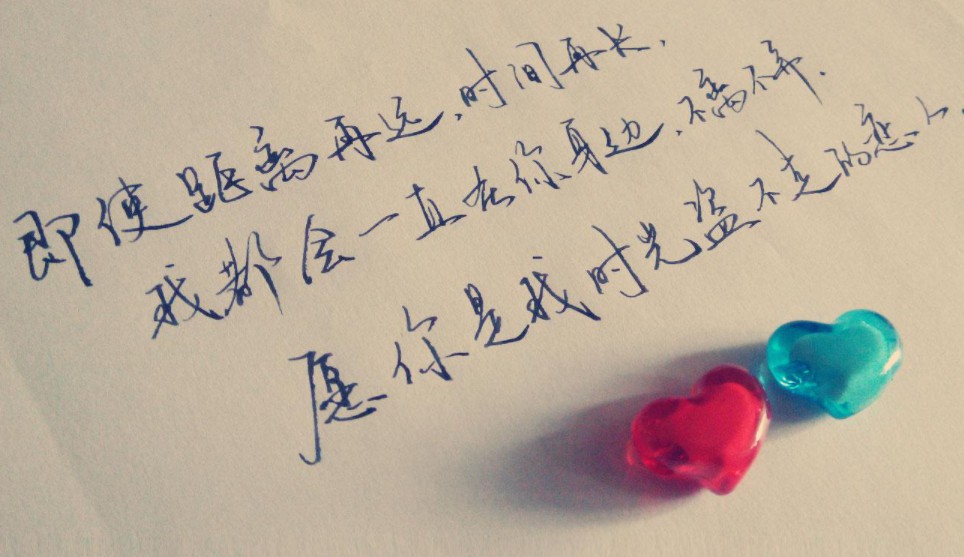 即使距离再远,时间再长.
我都会一直在你身边,不离不弃.
愿你是我时光盗不走的恋人.